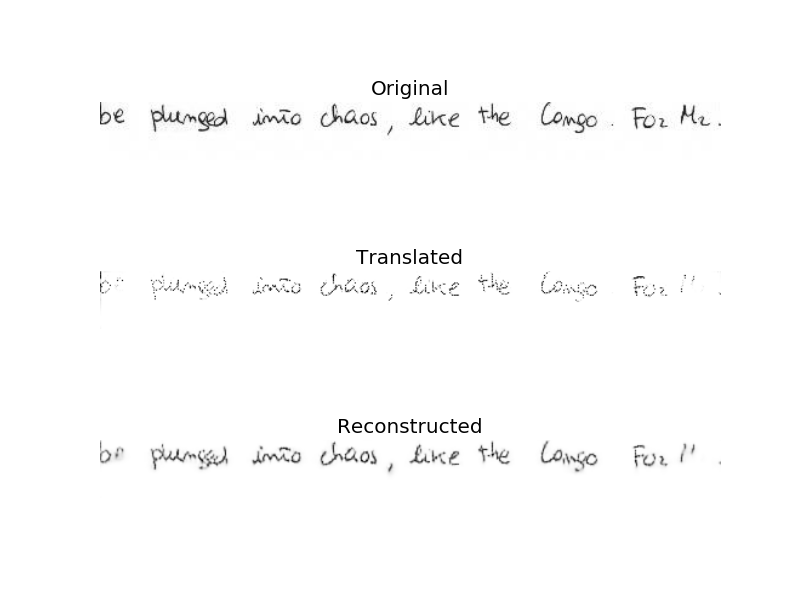 Original
be plunged into chaos, like the Congo. For Mr.
Translated
be plunged into chaos, like the Congo For
Reconstructed
be plunged into chaos, like the Congo For